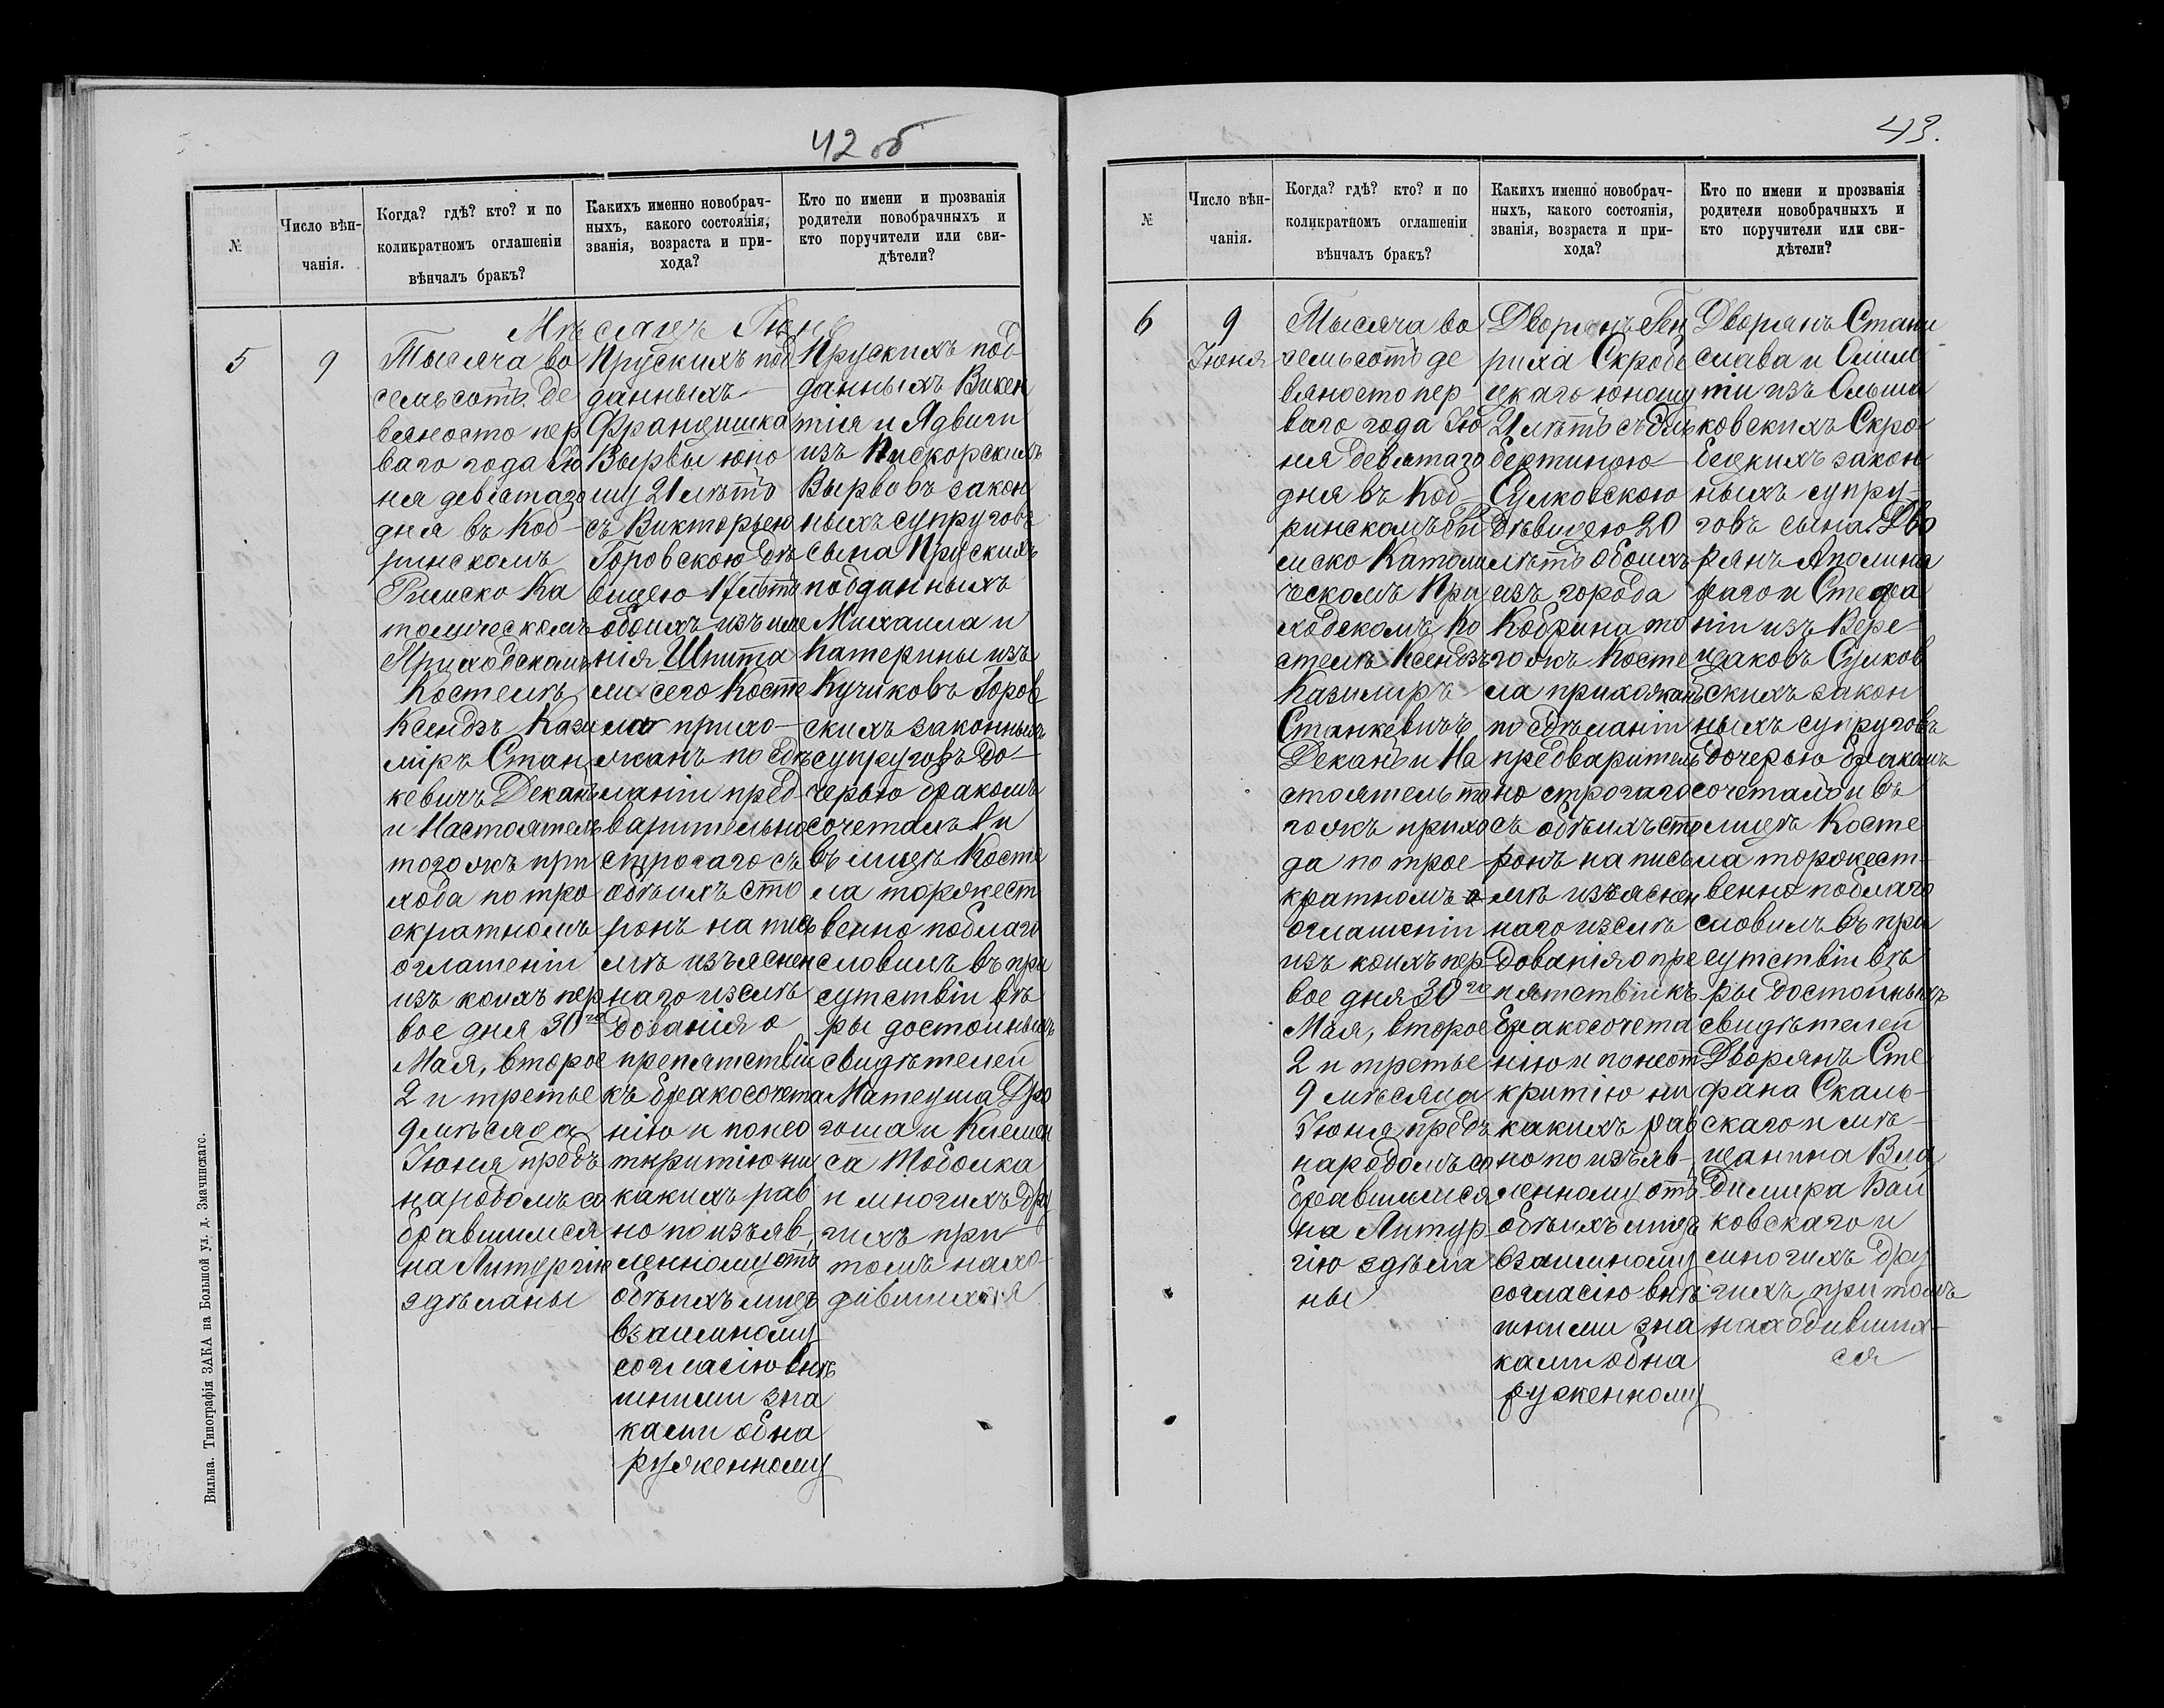 42 об
№
Число вѣн-
чанія.
Когда? гдѣ? кто? и по
коликратномъ оглашеніи
вѣнчалъ бракъ?
Какихъ именно новобрач-
ныхъ, какого состоянія,
званія, возраста и при-
хода?
Кто по имени и прозванія
родители новобрачныхъ и
кто поручители или сви-
дѣтели?
Мѣсяцъ Іюнь
5
9
Тысяча во
семьсотъ де
вяносто пер
ваго года Ію
ня девятаго
дня въ Коб-
ринскомъ
Римско Ка
толическомъ
Приходскомъ
Костелѣ
Ксендзъ Кази
міръ Стан
кевичъ Деканъ
и Настоятель
того жъ при
хода по тро
екратномъ
оглашеніи
изъ коихъ пер
вое дня 30го
Мая, второе
2 и третье
9 мѣсяца
Іюня предъ
народомъ со
бравшимся
на Литургію
здѣланы
Прускихъ под
данныхъ
Францишка
Вырвы юно
шу 21 лѣтъ
съ Викторьею
Горовскою дѣ
вицею 17 лѣтъ
обоихъ изъ име
нія Шпита
ли сего Косте
ла прихо-
жанъ по сдѣ
ланіи пред-
варительно
строгаго съ
обѣихъ сто
ронъ на пись
мѣ изъяснен
наго изслѣ
дованія о
препятствіи
къ бракосочета
нію и по нео
ткритію ни
какихъ рав
но по изъяв
ленному отъ
обѣихъ лицъ
взаимному
согласію внѣ
шними зна
ками обна
руженному
Прускихъ под
данныхъ Викен
тія и Ядвиги
изъ Пискорскихъ
Вырвовъ закон
ныхъ супруговъ
сына Прускихъ
подданныхъ
Михаила и
Катерины изъ
Кучиковъ Горов
скихъ законныхъ
супруговъ до-
черью бракомъ
сочеталъ и
въ лицѣ Косте
ла торжест
венно поблаго
словилъ въ при
сутствіи вѣ
ры достойныхъ
свидѣтелей
Матеуша Дро
гоша и Клемен
са Тоболка
и многихъ дру
гихъ при
томъ нахо-
дившихся
Вильна. Типографія ЗАКА на Большой ул. д. Змачинскаго.
43.
№
Число вѣн-
чанія.
Когда? гдѣ? кто? и по
коликратномъ оглашеніи
вѣнчалъ бракъ?
Какихъ именно новобрач-
ныхъ, какого состоянія,
званія, возраста и при-
хода?
Кто по имени и прозванія
родители новобрачныхъ и
кто поручители или сви-
дѣтели?
6
9
Іюня
Тысяча во
семьсотъ де
вяносто пер
ваго года Ію
ня девятаго
дня въ Коб-
ринскомъ Ри
мско Католи
ческомъ При
ходскомъ Ко
стелѣ Ксендзъ
Казимиръ
Станкевичъ
Деканъ и На
стоятель то
гожъ прихо
да по трое
кратномъ
оглашеніи
изъ коихъ пер
вое дня 30го
Мая, второе
2 и третье
9 мѣсяца
Іюня предъ
народомъ со
бравшимися
на Литур
гію здѣла
ны
Дворянъ Ген
риха Скробе
цкаго юношу
21 лѣтъ съ Ель
бертиною
Сулковскою
дѣвицею 20
лѣтъ обоихъ
изъ города
Кобрина то
гожъ Косте
ла прихожанъ
по сдѣланіи
предваритель
но строгаго
съ обѣихъ сто
ронъ на пись
мѣ изъяснен
наго изслѣ
дованія о пре
пятствіи къ
бракосочета
нію и по неот
критію ни
какихъ рав
но по изъяв-
ленному отъ
обѣихъ лицъ
взаимному
согласію внѣ
шними зна
ками обна
руженному
Дворянъ Стани
слава и Оми
ти изъ Ольша
ковскихъ Скро
бецкихъ закон
ныхъ супру-
говъ сына. Дво
рянъ Аполина
раго и Стефа
ніи изъ Вере
щаковъ Сулков
скихъ закон
ныхъ супруговъ
дочерью бракомъ
сочеталъ и въ
лицѣ Косте
ла торжест-
венно поблаго
словилъ въ при
сутствіи вѣ
ры достойныхъ
свидѣтелей
Дворянъ Сте
фана Скаль-
скаго и мѣ-
щанина Вла
димира Вай
ковскаго и
многихъ дру
гихъ при томъ
находивших-
ся